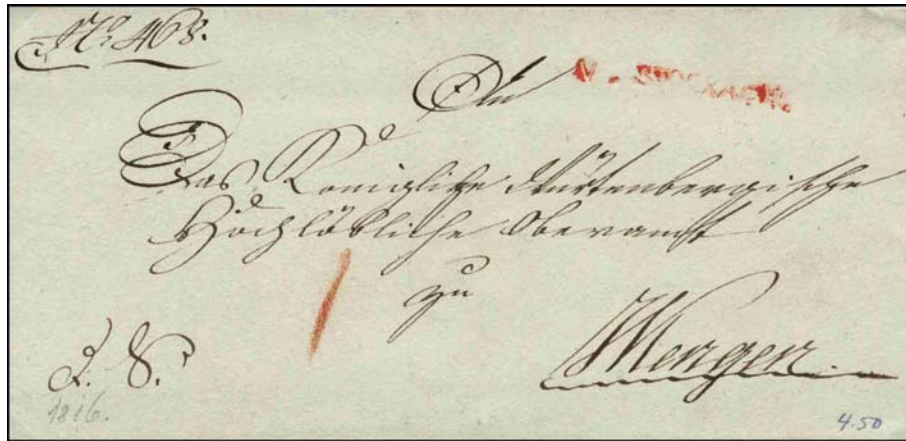 No 463.
An V. STOCKACH.
Das Königliche Würtenbergische
Hochlöbliche Oberamt
zu
Mengen.
1816.
4.50